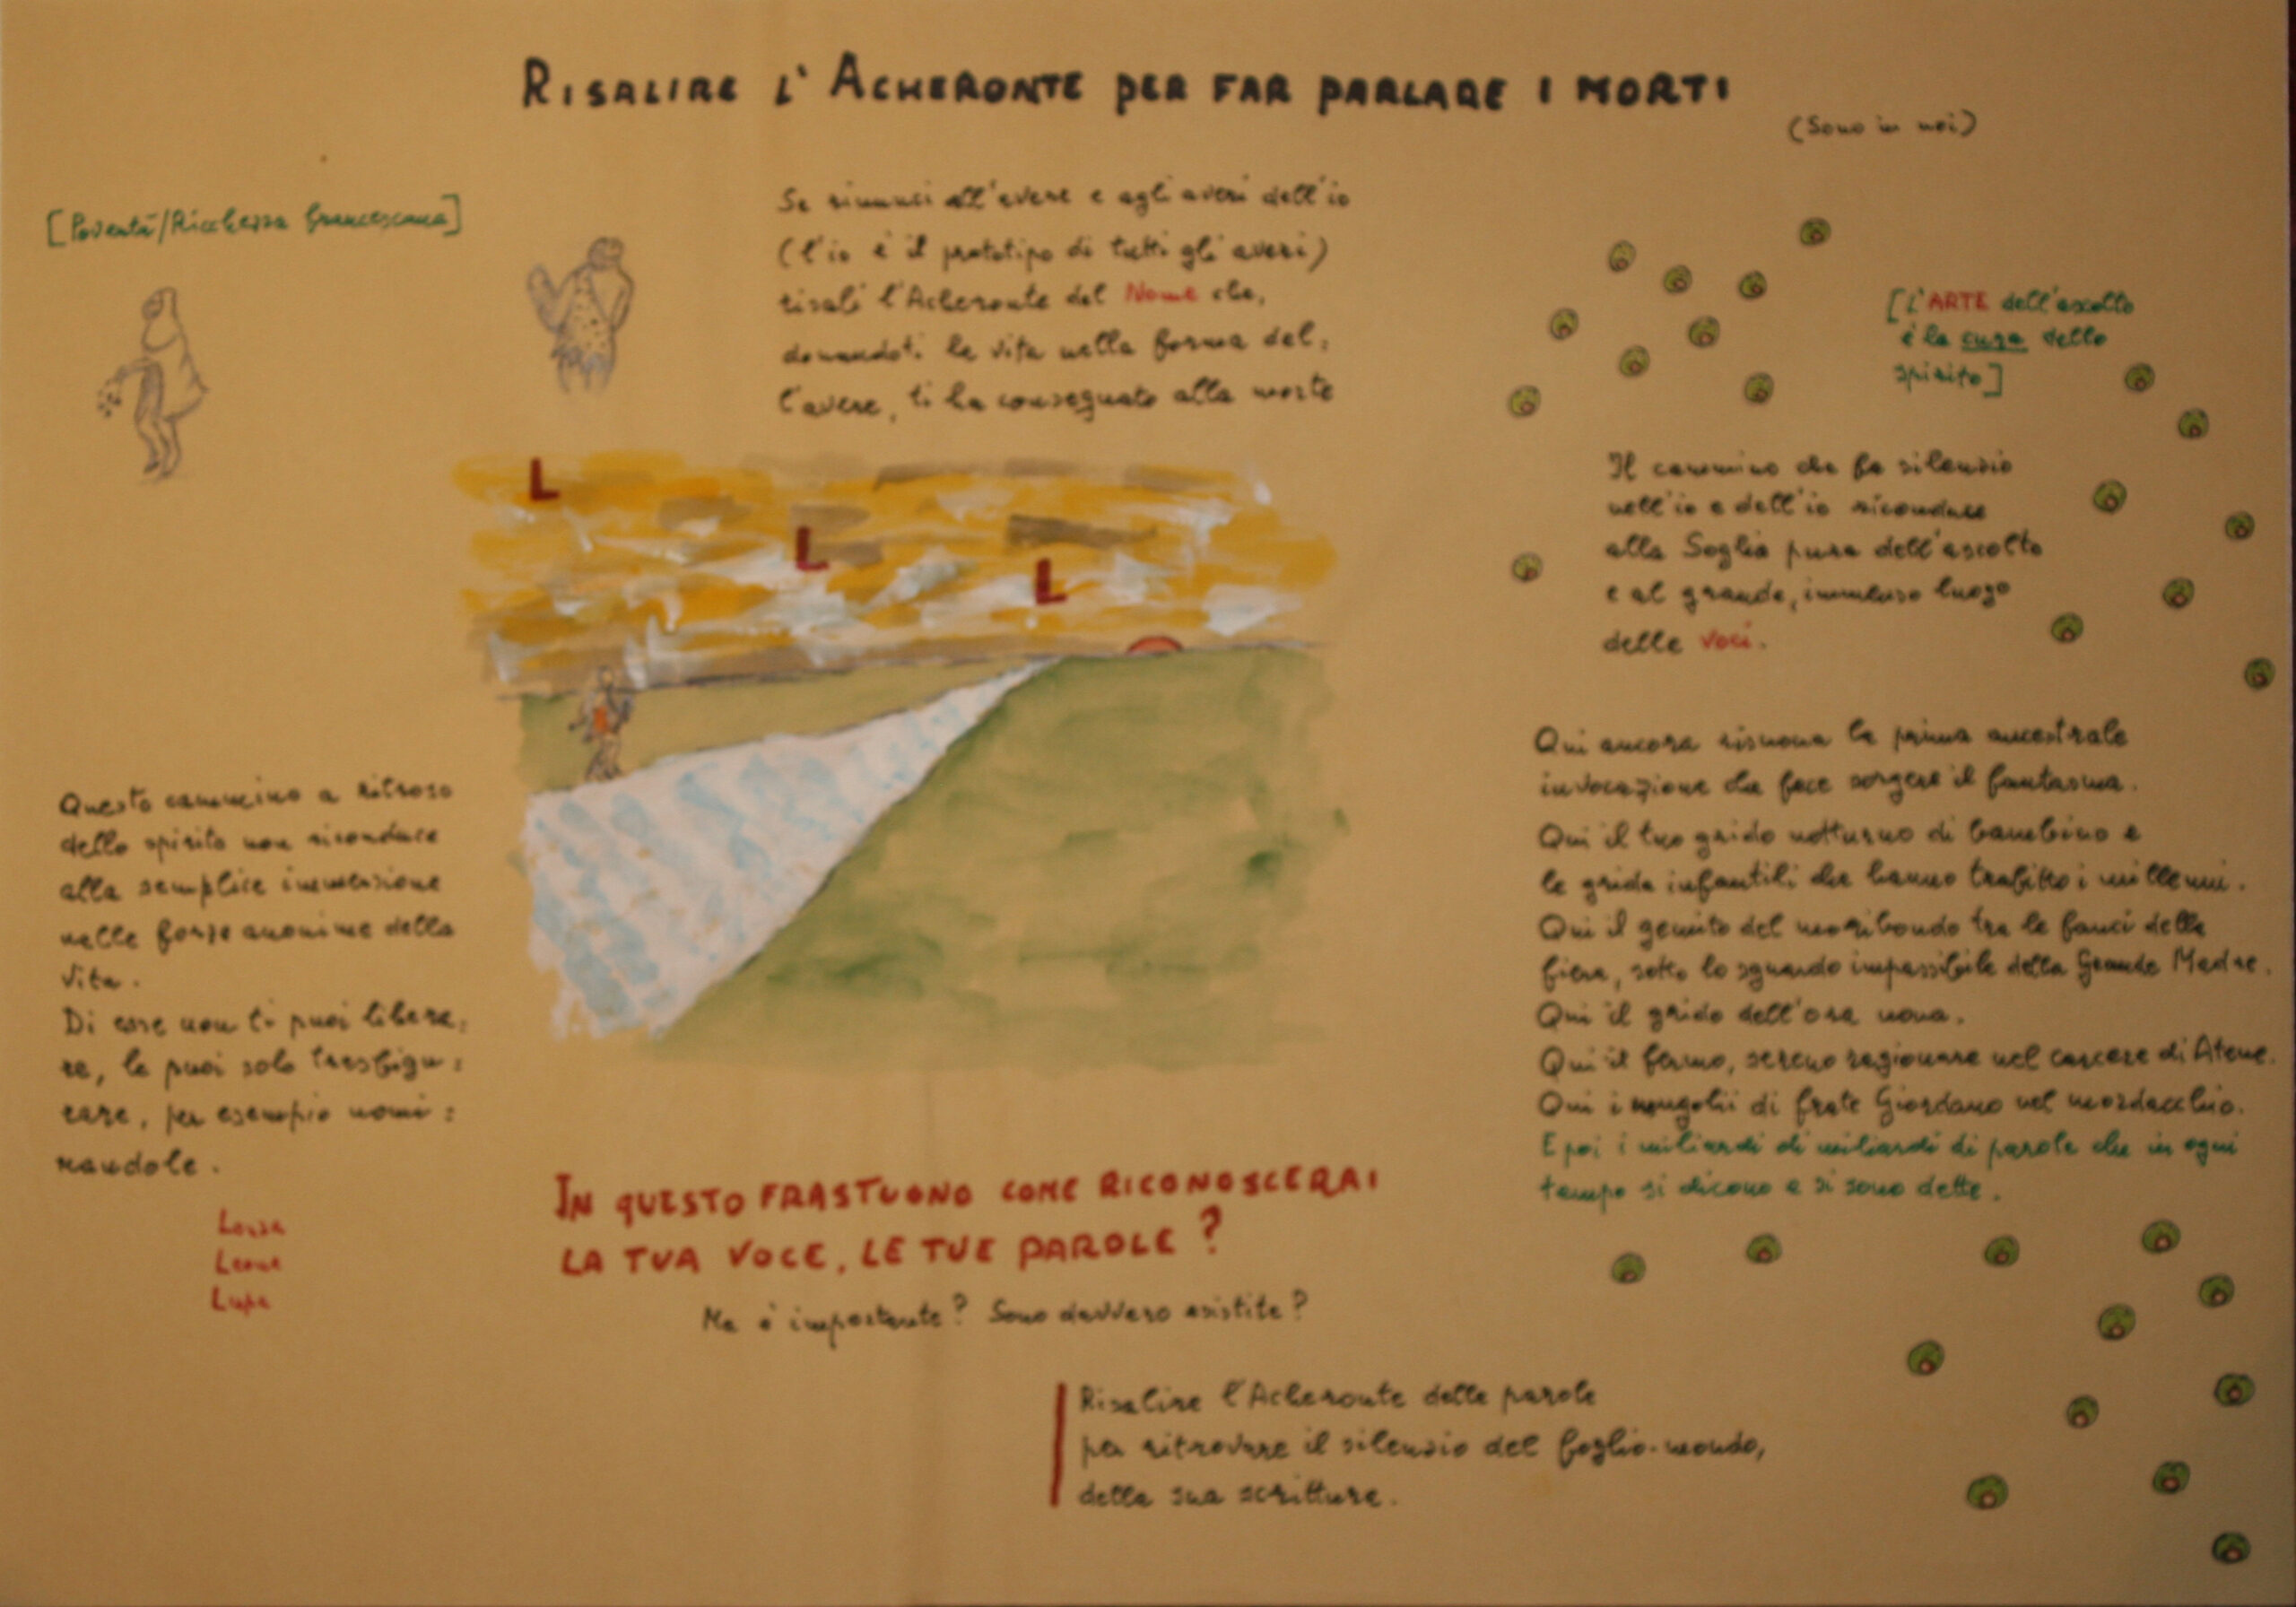 RISALIRE L'ACHERONTE PER FAR PARLARE I MORTI
(Sono in noi)
[Povertà/Ricchezza francescana]
Se rinunci all'avere e agli averi dell'io
(l'io è il prototipo di tutti gli averi)
risali l'Acheronte del Nome che,
donandoti la vita nella forma del=
l'avere, ti ha consegnato alla morte
[L'ARTE dell'ascolto
è la cura dello
spirito]
Il cammino che fa silenzio
nell'io e dell'io riconduce
alla Soglia pura dell'ascolto
e al grande, immenso luogo
delle voci.
L
L
L
Qui ancora risuona la prima ancestrale
invocazione che fece sorgere il fantasma.
Qui il tuo grido notturno di bambino e
le grida infantili che hanno trafitto i millenni.
Qui il gemito del moribondo tra le fauci della
fiera, sotto lo sguardo impassibile della Grande Madre.
Qui il grido dell'ora nona.
Qui il fermo, sereno ragionare nel carcere di Atene.
Qui i mugolii di frate Giordano nel mordacchio.
E poi i miliardi di miliardi di parole che in ogni
tempo si dicono e si sono dette.
Questo cammino a ritroso
dello spirito non riconduce
alla semplice immersione
nelle forze anonime della
vita.
Di esse non ti puoi libera=
re, le puoi solo trasfigu=
rare, per esempio nomi=
nandole.
Lonza
Leone
Lupa
IN QUESTO FRASTUONO COME RICONOSCERAI
LA TUA VOCE, LE TUE PAROLE?
Ma è importante? Sono davvero esistite?
Risalire l'Acheronte delle parole
per ritrovare il silenzio del foglio-mondo,
della sua scrittura.